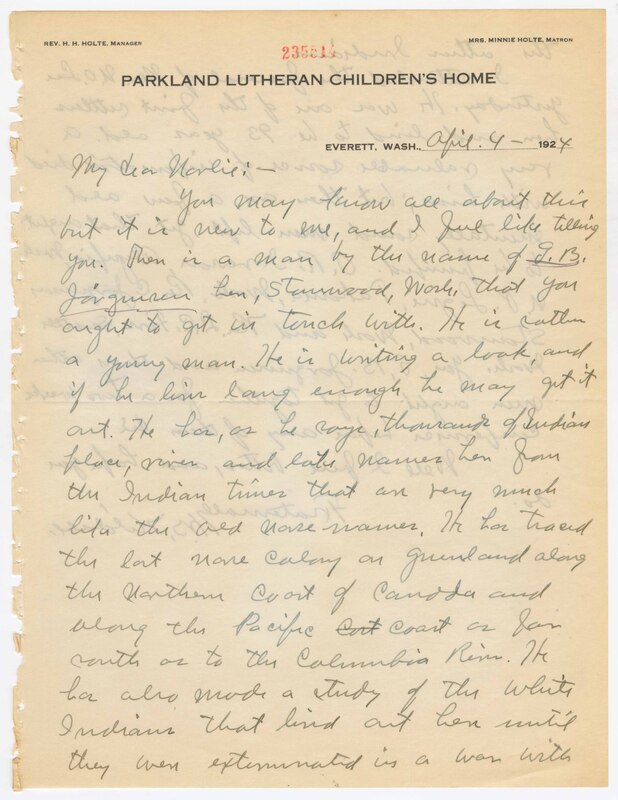 REV. H. H. HOLTE, MANAGER
MRS. MINNIE HOLTE, MATRON
235514
PARKLAND LUTHERAN CHILDREN'S HOME
EVERETT, WASH., April. 4 – 1924
My dear Norlie:—
You may know all about this
but it is new to me, and I feel like telling
you. There is a man by the name of J. B.
Jörgensen here, Stanwood, Wash. that you
ought to get in touch with. He is rather
a young man. He is writing a book, and
if he lives long enough he may get it
out. He has, as he says, thousands of Indian
place, river and lake names here from
the Indian times that are very much
like the old norse names. He has traced
the lost norse colony on greenland along
the northern coast of Canada and
along the Pacific cost coast as far
south as to the Columbia River. He
has also made a study of the white
Indians that lived out here until
they were exterminated in a war with